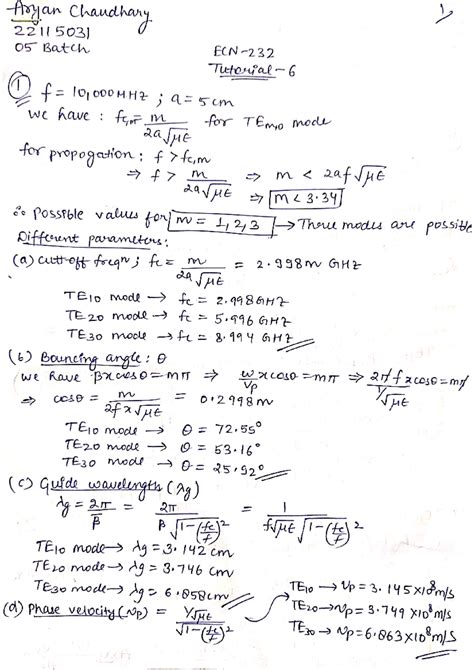 Aryan Chaudhary
22115031
O5 Batch
1
ECN-232
Tutorial-6
① f = 10,000MHZ ; a = 5cm
we have : fc,m = m/(2a√με) for TEm,0 mode
for propogation : f > fc,m
⇒ f > m/(2a√με) ⇒ m < 2af√με
⇒ m < 3.34
∴ possible values for m = 1, 2, 3 → Three modes are possible
Different parameters:
(a) cutt off freqⁿ ; fc = m/(2a√με) = 2.998m GHZ
TE10 mode → fc = 2.998GHZ
TE20 mode → fc = 5.996 GHZ
TE30 mode → fc = 8.994 GHZ
(b) Bouncing angle : θ
we have βxcosθ = mπ ⇒ w/vp xcosθ = mπ ⇒ 2πf/(1/√με) xcosθ = mπ
⇒ cosθ = m/(2fx√με) = 0.2998m
TE10 mode → θ = 72.55°
TE20 mode → θ = 53.16°
TE30 mode → θ = 25.92°
(c) Guide wavelength (λg)
λg = 2π/β = 2π/(β√(1-(fc/f)²)) = 1/(f√με √(1-(fc/f)²))
TE10 mode → λg = 3.142 cm
TE20 mode → λg = 3.746 cm
TE30 mode → λg = 6.858cm
(d) Phase velocity (vp) = (1/√με)/√(1-(fc/f)²)
TE10 → vp = 3.145x10⁸m/s
TE20 → vp = 3.749x10⁸m/s
TE30 → vp = 6.863x10⁸m/s